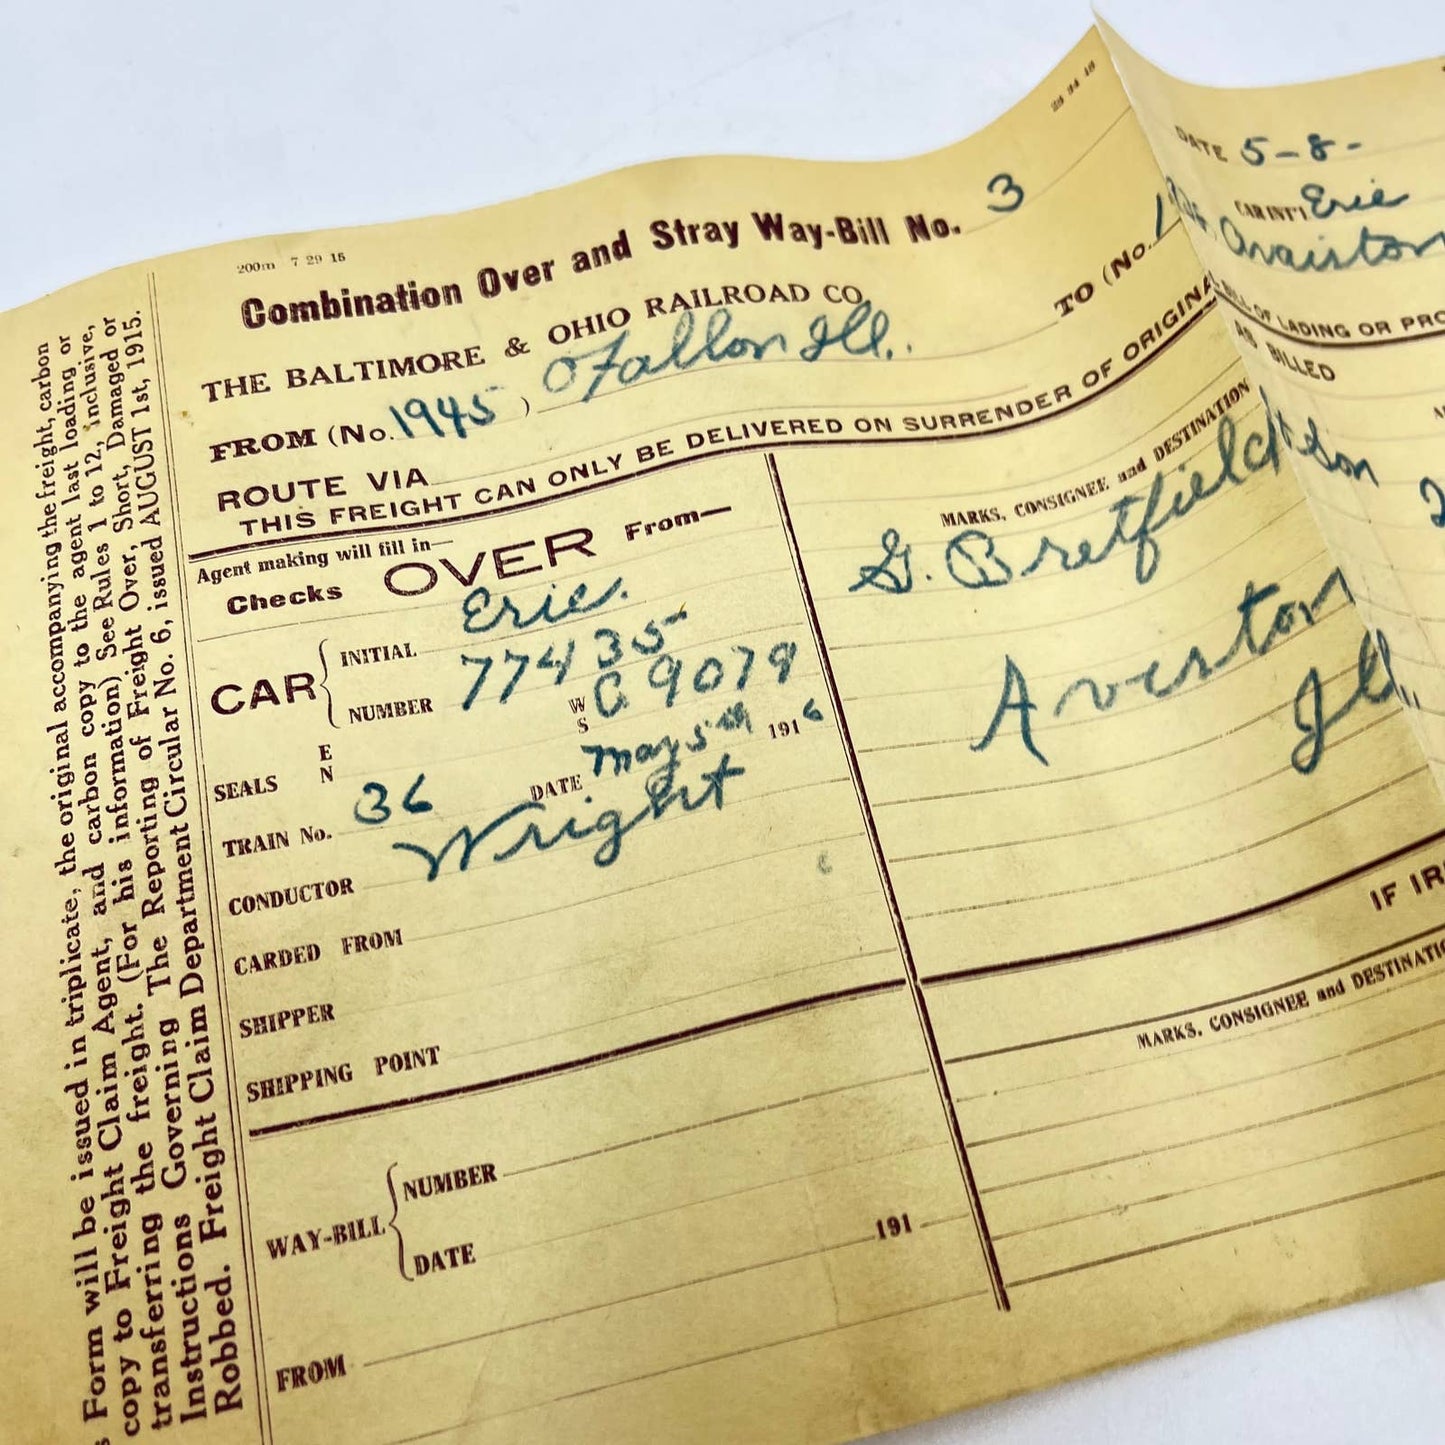 200m 7 29 15
Combination Over and Stray Way-Bill No. 3
THE BALTIMORE & OHIO RAILROAD CO.
FROM (No. 1945) O'Fallon Ill. TO (No.
ROUTE VIA
THIS FREIGHT CAN ONLY BE DELIVERED ON SURRENDER OF ORIGINA
BILL OF LADING OR PRO
DATE 5-8-
CAR INT'L Erie
Agent making will fill in—
Checks OVER From—
CAR INITIAL Erie.
NUMBER 77435
SEALS E N W S C 9079
TRAIN No. 36 DATE May 5th 1916
CONDUCTOR Wright
CARDED FROM
SHIPPER
SHIPPING POINT
WAY-BILL NUMBER
DATE 191
FROM
AS BILLED
MARKS, CONSIGNEE and DESTINATION
G. Bretfield & Son
Aviston
Ill.
IF IR
MARKS, CONSIGNEE and DESTINATIO
Form will be issued in triplicate, the original accompanying the freight, carbon
copy to Freight Claim Agent, and carbon copy to the agent last loading or
transferring the freight. (For his information) See Rules 1 to 12, inclusive,
Instructions Governing The Reporting of Freight Over, Short, Damaged or
Robbed. Freight Claim Department Circular No. 6, issued AUGUST 1st, 1915.